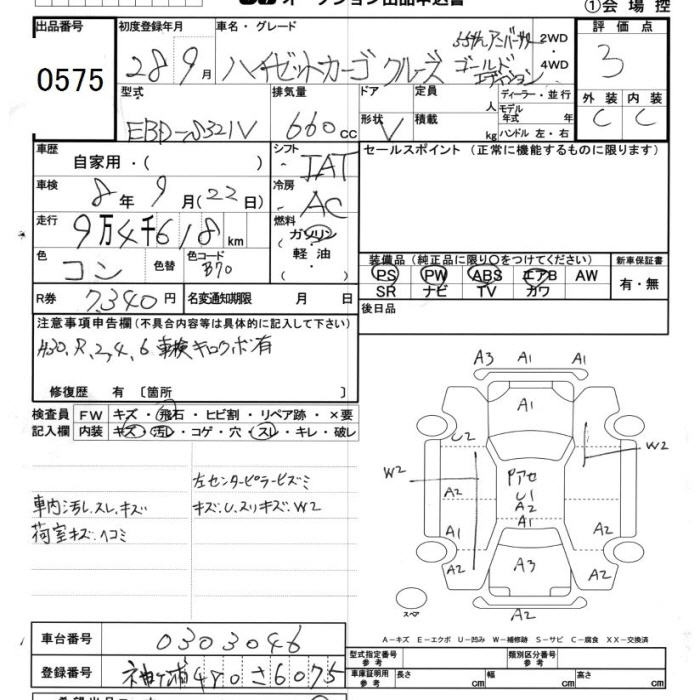 オークション出品申込書
①会場控
出品番号
0575
初度登録年月
28 9月
車名・グレード
ハイゼットカーゴ クルーズ
55thアニバーサリー
ゴールド
エディション
2WD
・
4WD
評価点
3
外装 内装
C C
型式
EBD-S321V
排気量
660cc
ドア
形状 V
定員 人
積載 kg
ディーラー・並行
モデル
年式 年
ハンドル 左・右
車歴
自家用・( )
車検
8年9月(22日)
走行
9万4千618km
色
コン
色替
色コード
B70
シフト
IAT
冷房
AC
燃料
ガソリン
軽油
セールスポイント (正常に機能するものに限ります)
装備品(純正品に限り○をつけてください)
PS PW ABS エアB AW
SR ナビ TV カワ
新車保証書
有・無
R券 7,340円
名変通知期限 月 日
後日品
注意事項申告欄(不具合内容等は具体的に記入して下さい)
H30,R,2,4,6 車検キロクボ有
修復歴 有 〔箇所 〕
検査員
記入欄
FW キズ・飛石・ヒビ割・リペア跡・×要
内装 キズ・汚レ・コゲ・穴・スレ・キレ・破レ
左センターピラービズミ
車内汚レ.スレ.キズ
キズ.U.スリキズ.W2
荷室キズ.ヘコミ
A3 A1 A1
A1
U2
W2
W2
Pアセ
U1
A2
A2
A2
A1
A1
A1
A3
A2
A2
A2
スペア
A－キズ E－エクボ U－凹み W－補修跡 S－サビ C－腐食 XX－交換済
車台番号 0303046
登録番号 袖ヶ浦480さ6075
型式指定番号
参考
類別区分番号
参考
車庫証明用
参考
長さ cm
幅 cm
高さ cm